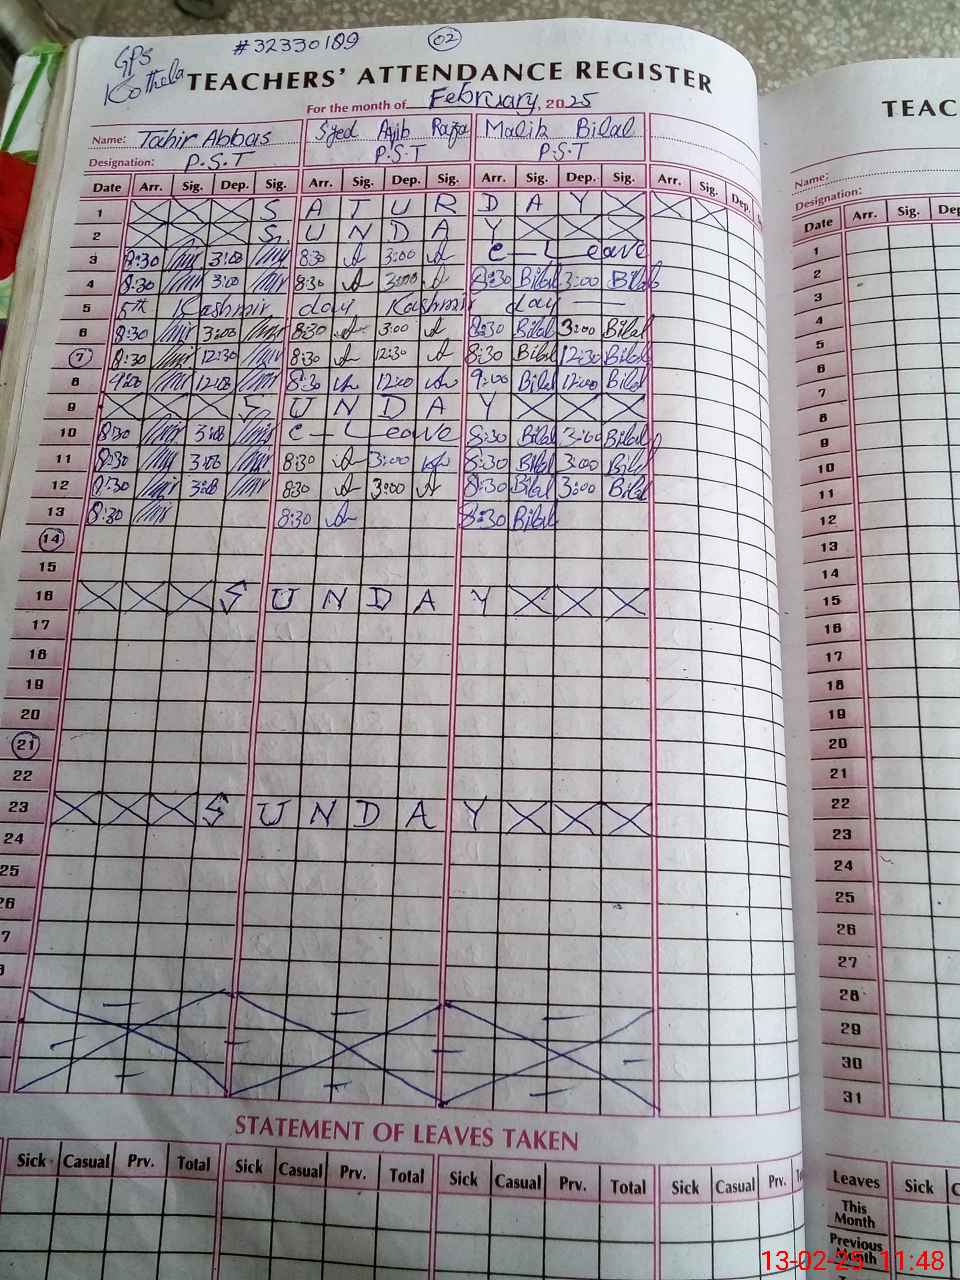 GPS #32330189 02
Kothela TEACHERS' ATTENDANCE REGISTER
For the month of February, 2025
Name: Tahir Abbas Syed Ajib Raza Malik Bilal
Designation: P.S.T P.S.T P.S.T
Date Arr. Sig. Dep. Sig. Arr. Sig. Dep. Sig. Arr. Sig. Dep. Sig. Arr. Sig. Dep.
1 S A T U R D A Y
2 S U N D A Y
3 8:30 3:00 8:30 3:00 C-Leave
4 8:30 3:00 8:30 3:00 8:30 Bilal 3:00 Bilal
5 5th Kashmir day Kashmir day
6 8:30 3:00 8:30 3:00 8:30 Bilal 3:00 Bilal
7 8:30 12:30 8:30 12:30 8:30 Bilal 12:30 Bilal
8 9:00 12:00 8:30 12:00 9:00 Bilal 12:00 Bilal
9 S U N D A Y
10 8:30 3:00 C-Leave 8:30 Bilal 3:00 Bilal
11 8:30 3:00 8:30 3:00 8:30 Bilal 3:00 Bilal
12 8:30 3:00 8:30 3:00 8:30 Bilal 3:00 Bilal
13 8:30 8:30 8:30 Bilal
14
15
16 S U N D A Y
17
18
19
20
21
22
23 S U N D A Y
24
25
26
7
STATEMENT OF LEAVES TAKEN
Sick Casual Prv. Total Sick Casual Prv. Total Sick Casual Prv. Total Sick Casual Prv.
TEAC
Name:
Designation:
Date Arr. Sig. Dep
1
2
3
4
5
6
7
8
9
10
11
12
13
14
15
16
17
18
19
20
21
22
23
24
25
26
27
28
29
30
31
Leaves Sick C
This
Month
Previous
Month
13-02-25 11:48